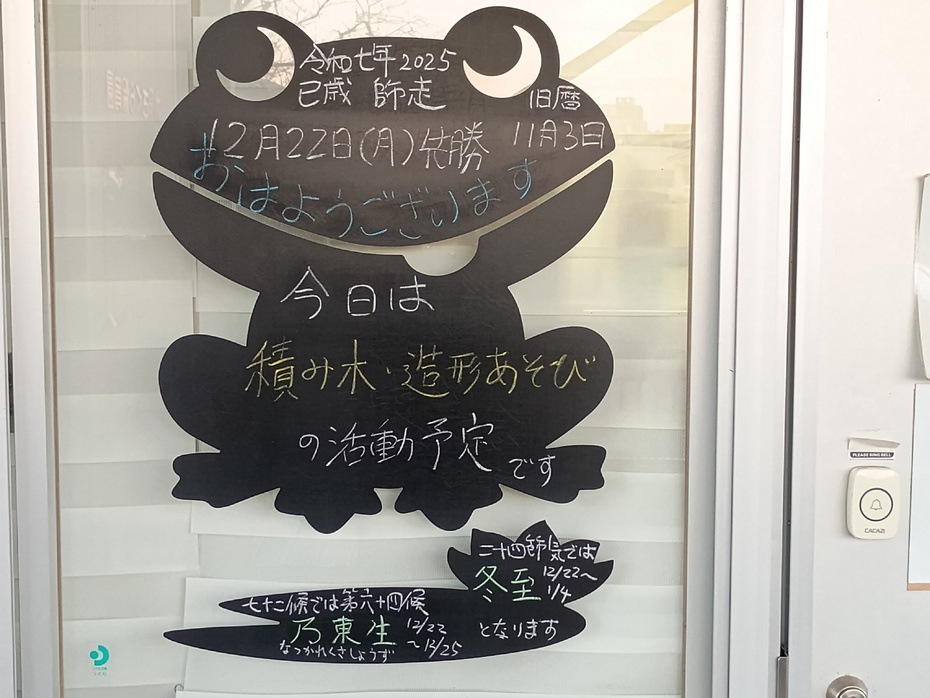 令和七年2025
巳歳 師走
旧暦
12月22日(月)先勝 11月3日
おはようございます
今日は
積み木・造形あそび
の活動予定です
二十四節気では
冬至 12/22〜1/4
七十二候では第六十四候
乃東生 12/22〜12/25
なつかれくさしょうず
となります
PLEASE RING BELL
CACAZI